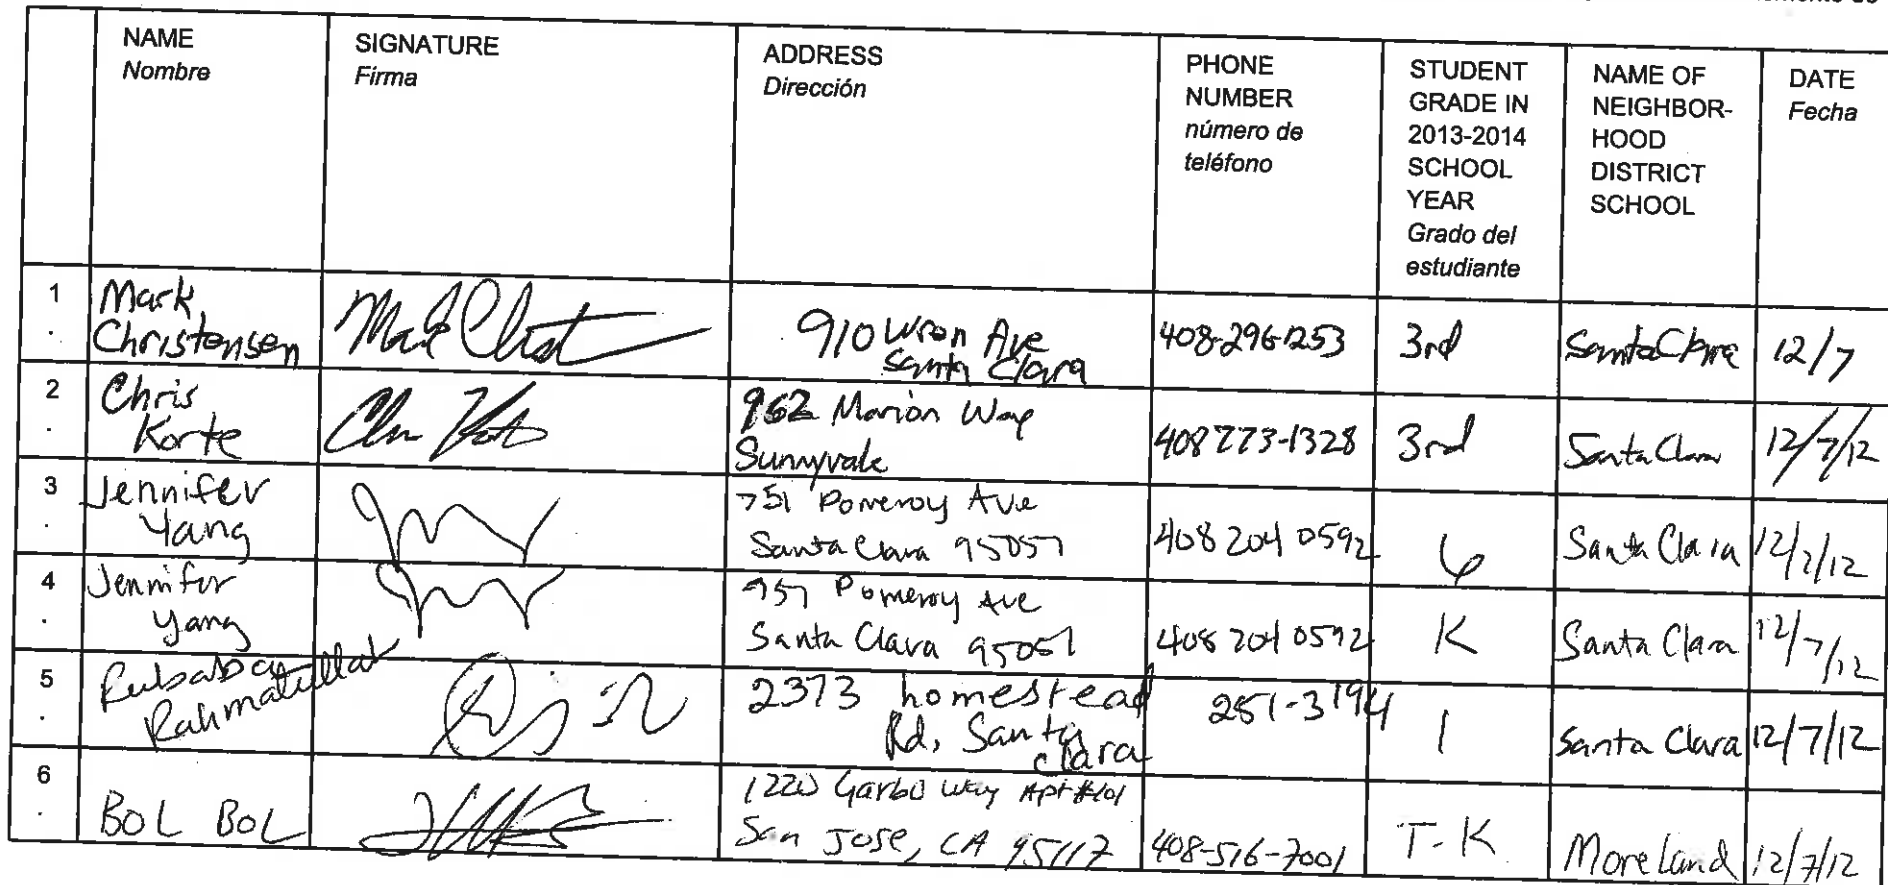 NAME
Nombre
SIGNATURE
Firma
ADDRESS
Dirección
PHONE
NUMBER
número de
teléfono
STUDENT
GRADE IN
2013-2014
SCHOOL
YEAR
Grado del
estudiante
NAME OF
NEIGHBOR-
HOOD
DISTRICT
SCHOOL
DATE
Fecha
1.
Mark
Christensen
910 Ave
Santa Clara
408-296-1253
3rd
Santa Clara
12/7
2.
Chris
Korte
962 Marion Way
Sunnyvale
408 773-1328
3rd
Santa Clara
12/7/12
3.
Jennifer
Yang
Pomeroy Ave
Santa Clara 95051
408 204 0592
6
Santa Clara
12/7/12
4.
Jennifer
Yang
957 Pomeroy Ave
Santa Clara 95051
408 204 0592
K
Santa Clara
12/7/12
5.
Rubaba
Rahmatullah
2373 homestead
Rd, Santa
Clara
251-3194
1
Santa Clara
12/7/12
6.
BOL BOL
1220 Garbo Way Apt #101
San Jose, CA 95117
408-516-7001
T-K
Moreland
12/7/12